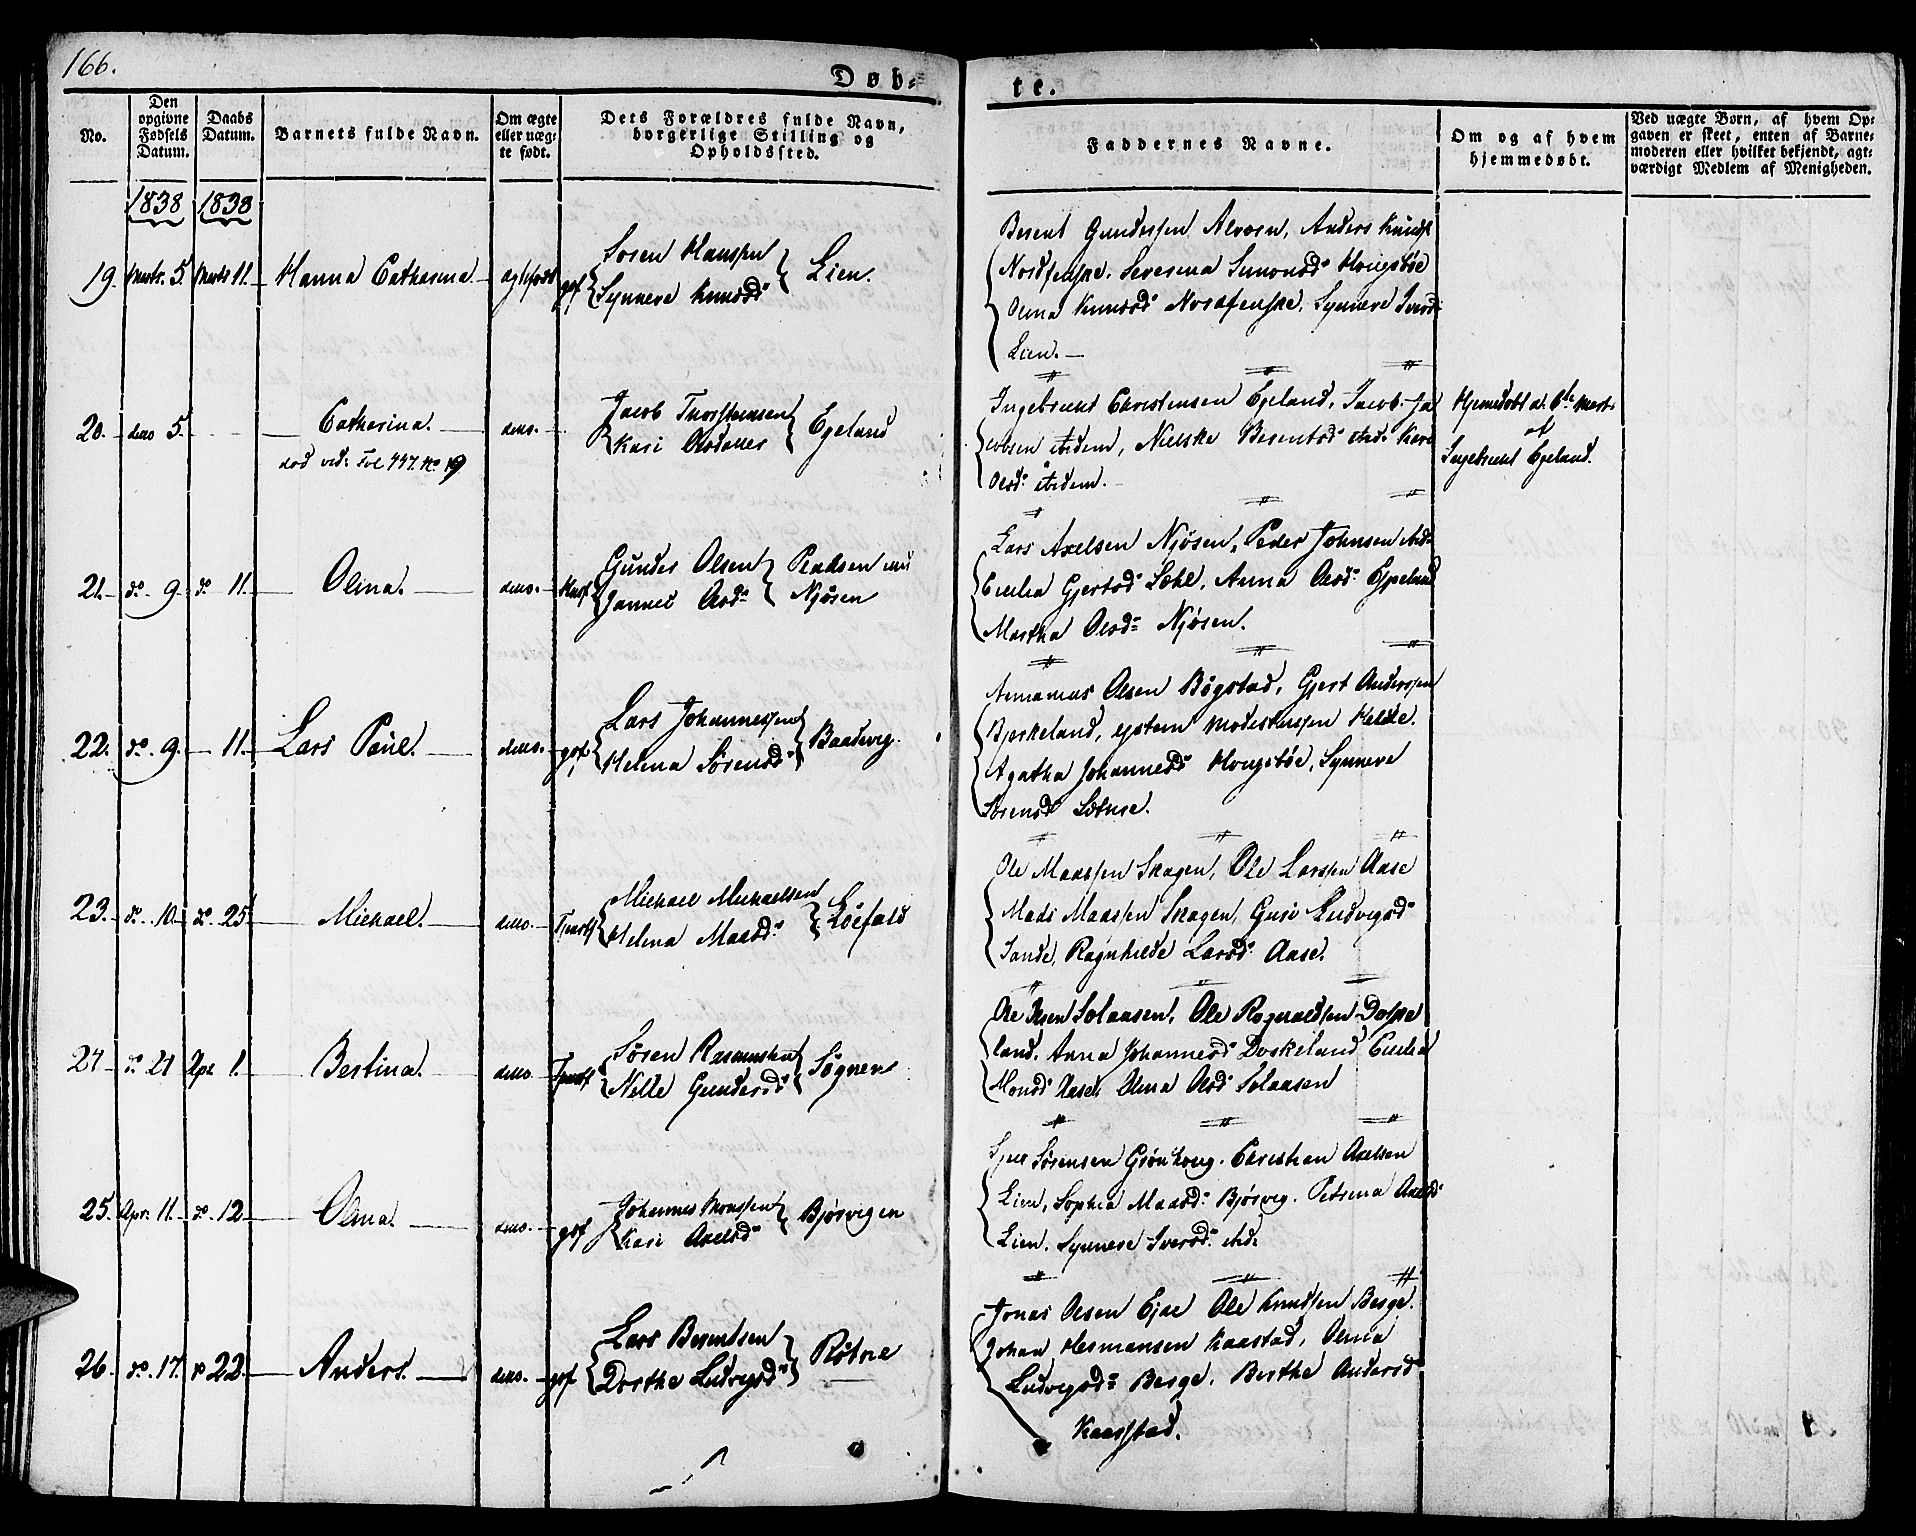 166.
Døb-
te.
No.
Den opgivne Fødsels Datum.
Daabs Datum.
Barnets fulde Navn.
Om ægte eller uæg- te født.
Dets Forældres fulde Navn, borgerlige Stilling og Opholdssted.
Faddernes Navne.
Om og af hvem hjemmedøbt.
Ved uægte Børn, af hvem Op- gaven er skeet, enten af Barne- moderen eller hvilket bekjendt, agt- værdigt Medlem af Menigheden.
1838 1838
19. Marts. 5. Marts 11. Hanna Catharina ægtefødt
gsf Soren Hanssen
Synneve Knudsd: Lien.
Berent Gundersen Alvoen, Anders Knuds
Nordfenske. Severina Simonsd: Hougstøe
Olina Knudsd: Nordfenske. Synneve Iversd:
Lien.
20. dito 5. Catharina. dito.
død vid: Fol 447. No 19
Jacob Thorsteinsen
Kari Olsdatter Egeland
Ingebrect Christensen Egeland, Jacob Ja
cobsen ibidem, Nielske Berentsd: ibid: Kari
Olsd: ibidem.
Hjemmedøbt d. 6te Marts
af
Ingebrect Egeland.
21. do. 9. do 11. Olina. dito. Husf
Gunder Olsen
Jannes Olsd: Njøsen
Lars Axelsen Njøsen, Peder Johnsen ibid:
Cecilia Gjertsd: Sæhl, Anna Olsd: Espeland
Martha Olsd: Njøsen.
22. do. 9. 11. Lars Paul. dito. gsf
Lars Johannessen
Helena Sørensd: Baadsvig.
Olsen Bøgstad, Gjert Anderssen
Bjerkeland, Eystem Modestussen Helde.
Agatha Johannesd: Hougstøe, Synneve
Sørensd: Sætnse.
23. do. 10. do. 25. Michael. dito.
Michael Michaelsen
Helena Maasd: Løefald
Ole Maassen Skagen, Ole Larssen Aase
Mads Maassen Skagen, Guri Ludvigsd:
Sande, Ragnhilde Larsd: Aase.
24 do 21 Apr 1. Bertina. dito
Søren Rasmussen
Nille Gundersd: Søgnen
Ole Olsen Solaasen, Ole Rognaldsen Doske
land. Anna Johannesd: Doskeland Cecilia
Monsd: Aase, Olina Olsd: Solaasen
25. Apr. 11. do. 12 Olina. dito gsf
Johannes Monssen
Kari Axelsd: Bjørvigen
Sørensen Grønhoug. Christian Axelsen
Lien, Sophia Maasd: Bjørvig. Petrina Axelsd:
Lien. Synneve Iversd: ibid:
26. do. 17. do 22. Anders. dito. gsf
Lars Berentsen
Dorthe Ludvigsd: Røtne
Jonas Olsen Ejde Ole Knudsen Berge.
Johan Hermansen Kaastad, Olina
Ludvigsd: Berge. Berthe Andersd:
Kaasstad.